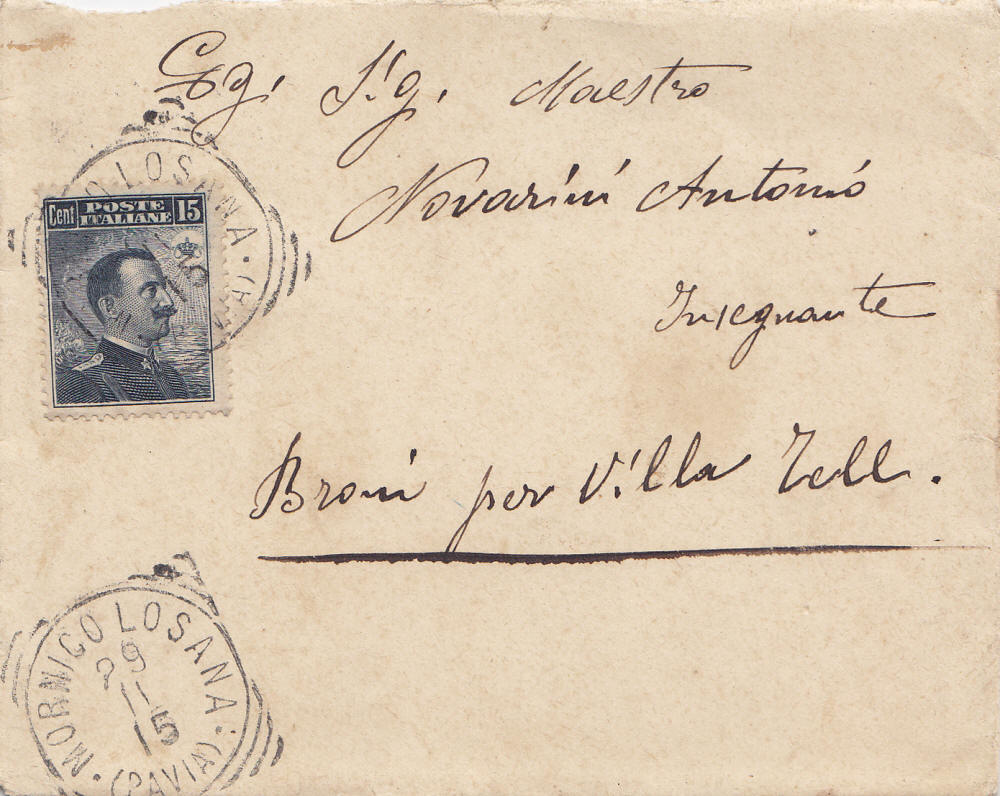 Eg. Sig. Maestro
Novarini Antonio
Insegnante
Broni per Villa Zell.
Cent POSTE ITALIANE 15
O LOSANA · (A
MORNICO LOSANA
· (PAVIA) ·
15